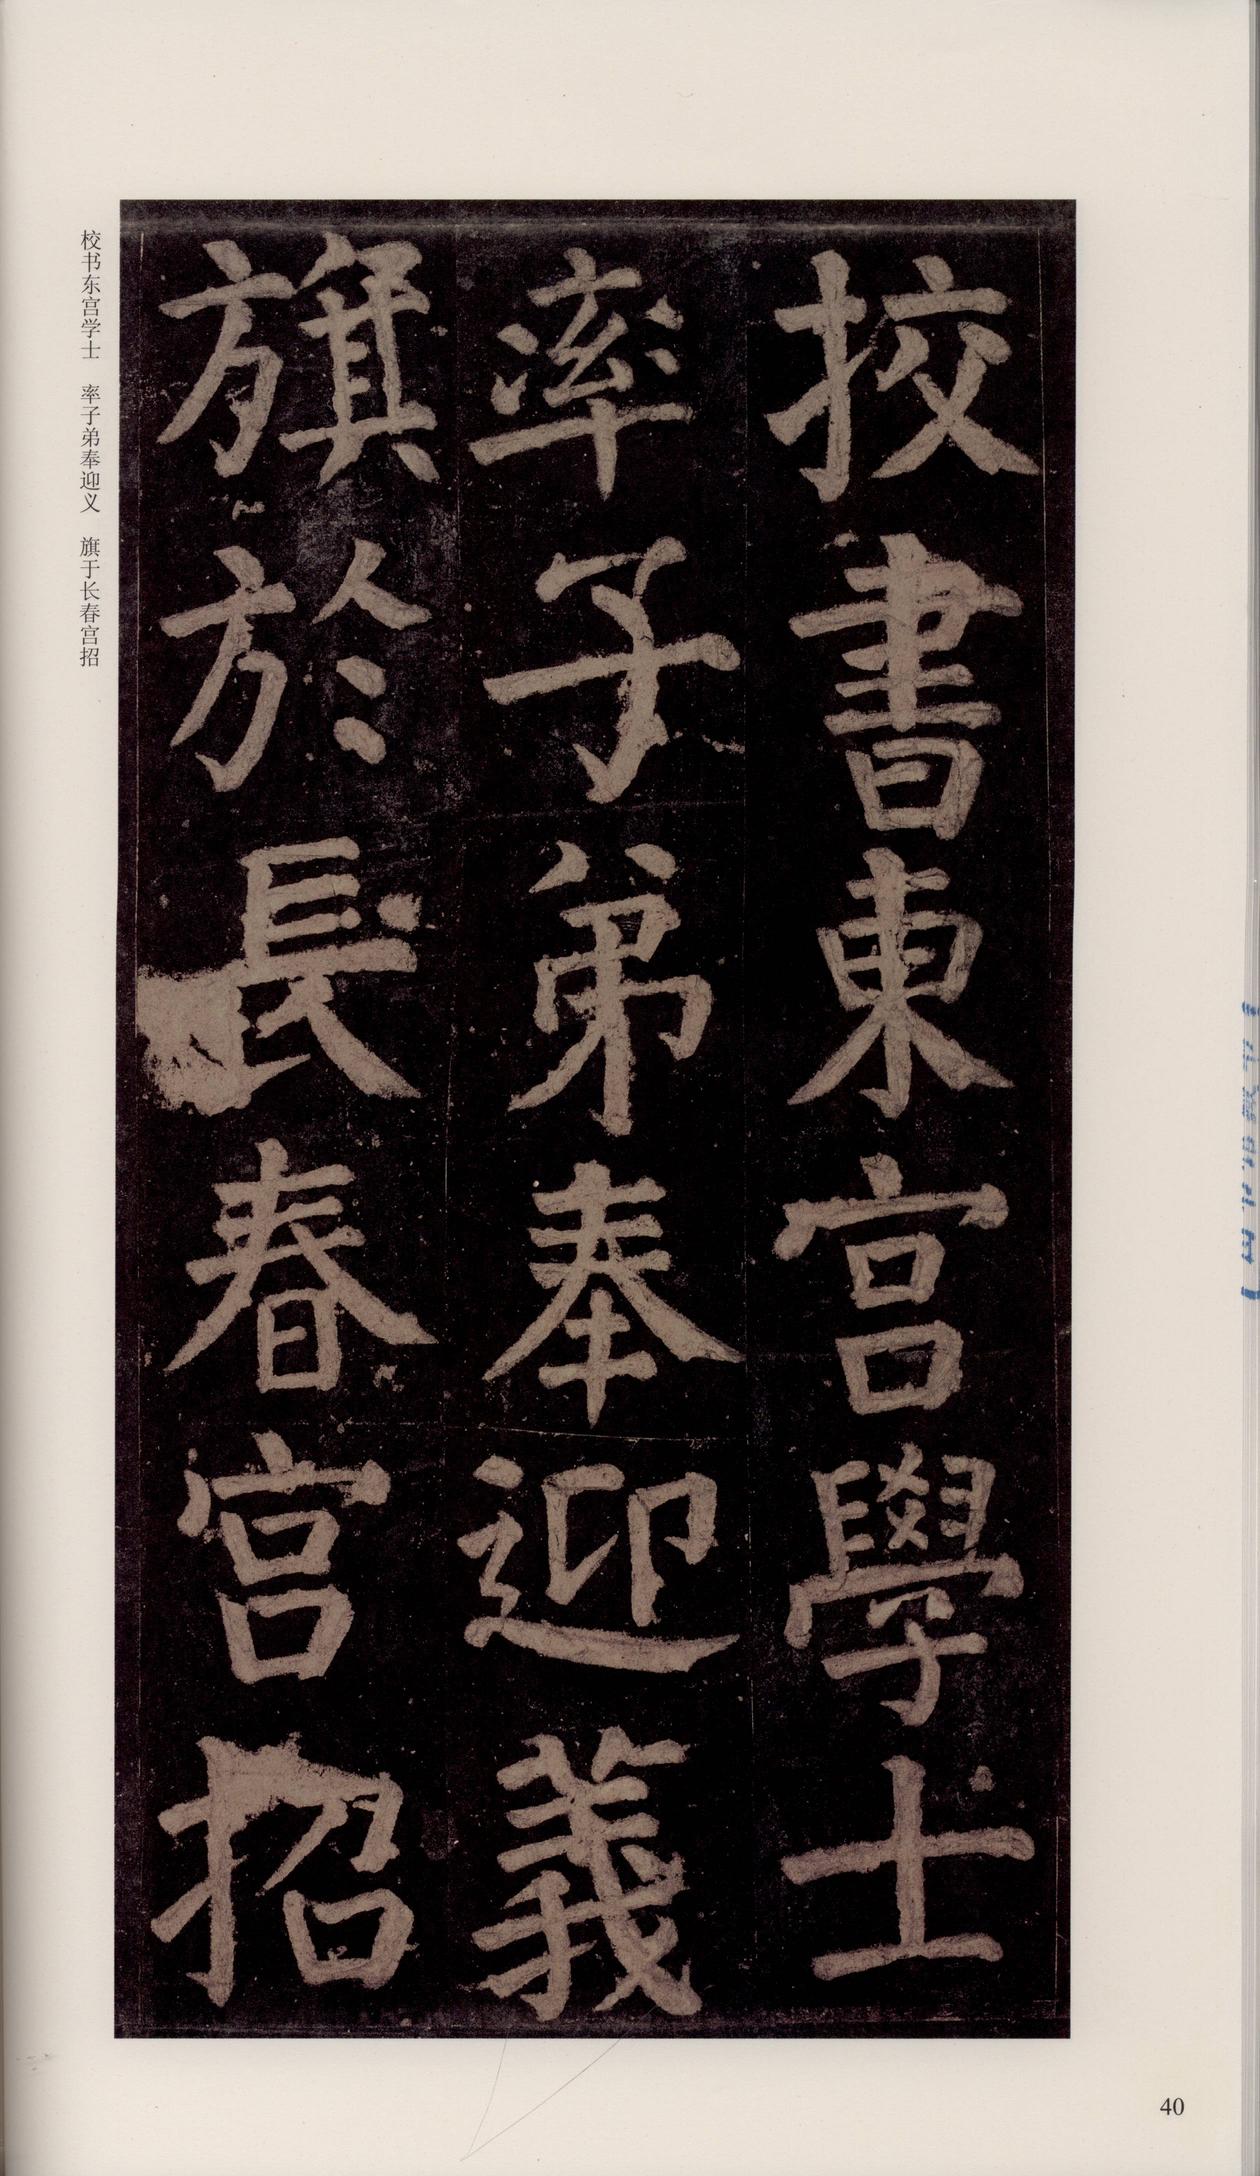 挍書東宫學士
率子弟奉迎義
旗於長春宫招
校书东宫学士　率子弟奉迎义　旗于长春宫招
40